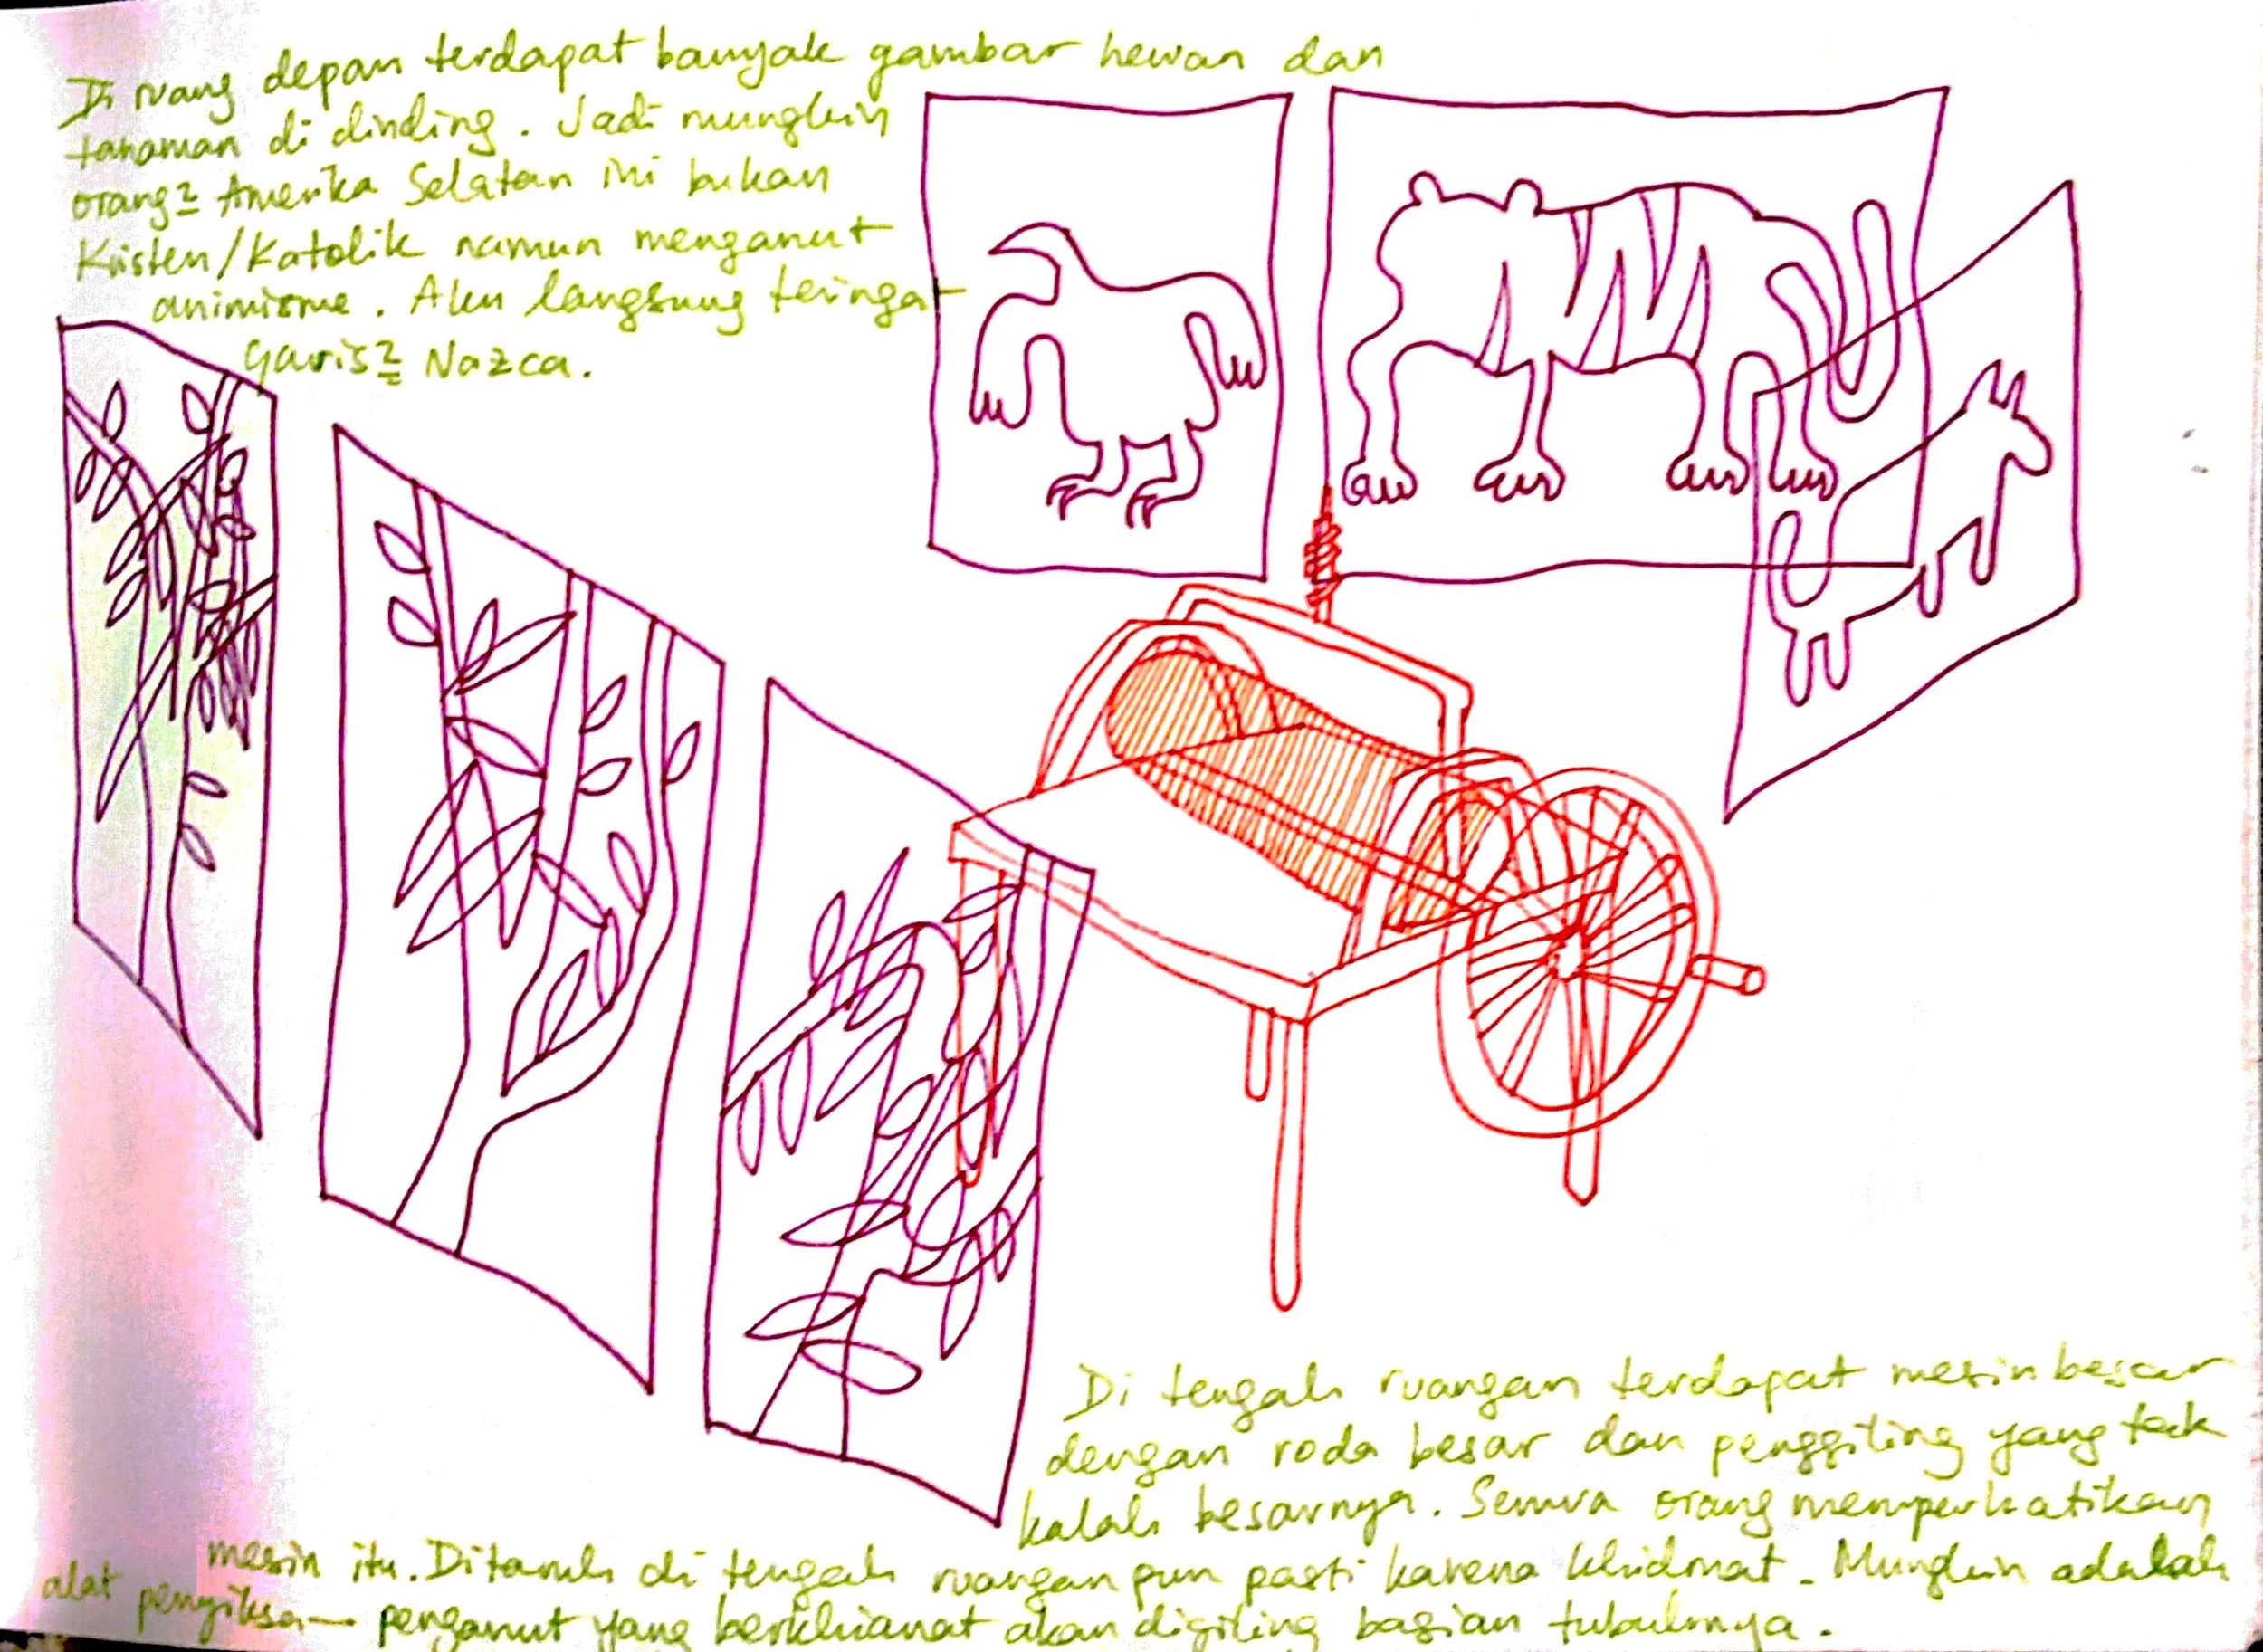 Di ruang depan terdapat banyak gambar hewan dan
tanaman di dinding. Jadi mungkin
orang2 Amerika Selatan ini bukan
Kristen/Katolik namun menganut
animisme. Aku langsung teringat
garis2 Nazca.
Di tengah ruangan terdapat mesin besar
dengan roda besar dan penggiling yang tak
kalah besarnya. Semua orang memperhatikan
mesin itu. Ditaruh di tengah ruangan pun pasti karena khidmat. Mungkin adalah
alat penyiksa— penganut yang berkhianat akan digiling bagian tubuhnya.